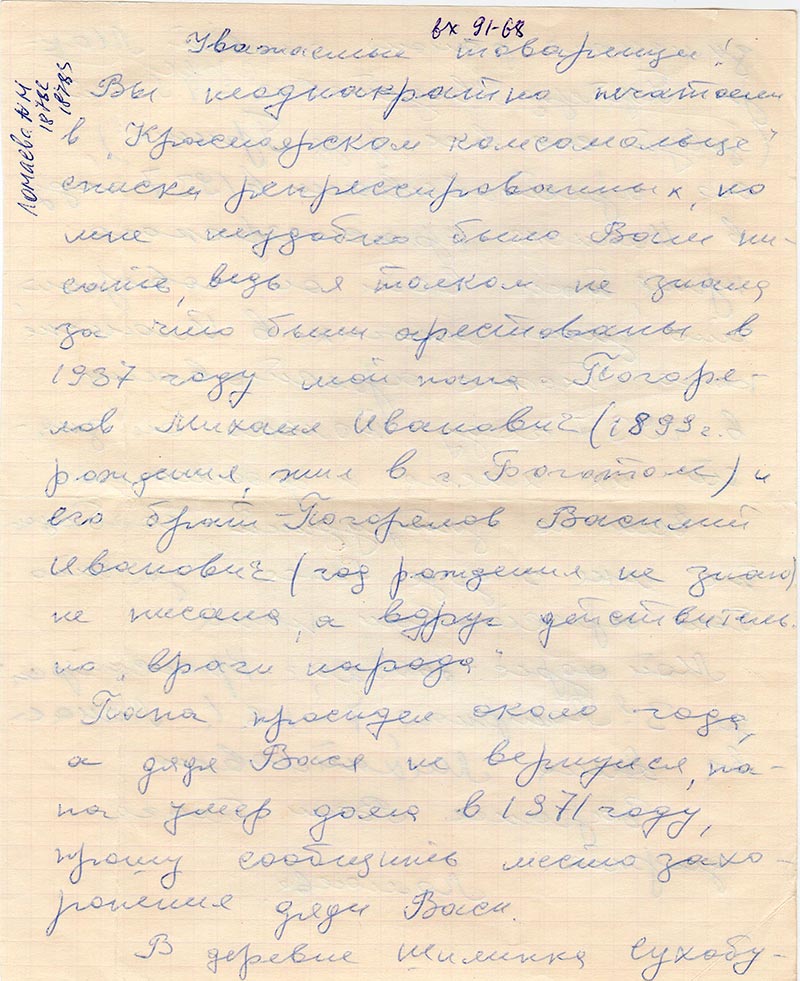 вх 91-68
Ломаева НМ
1878С
1878S
Уважаемые товарищи!
Вы неоднакратно печатали
в „Красноярском комсомольце"
списки репрессированных, но
мне неудобно было Вам пи-
сать, ведь я толком не знала
за что были арестованы в
1937 году мой папа – Погоре-
лов Михаил Иванович (1899 г.
рождения, жил в г Боготоле) и
его брат – Погорелов Василий
Иванович (год рождения не знаю)
не писала, а вдруг действитель-
но „враги народа"
Папа просидел около года,
а дядя Вася не вернулся, па-
па умер дома в 1971 году,
прошу сообщить место захо-
ронения дяди Васи.
В деревне Шилинка Сухобу-